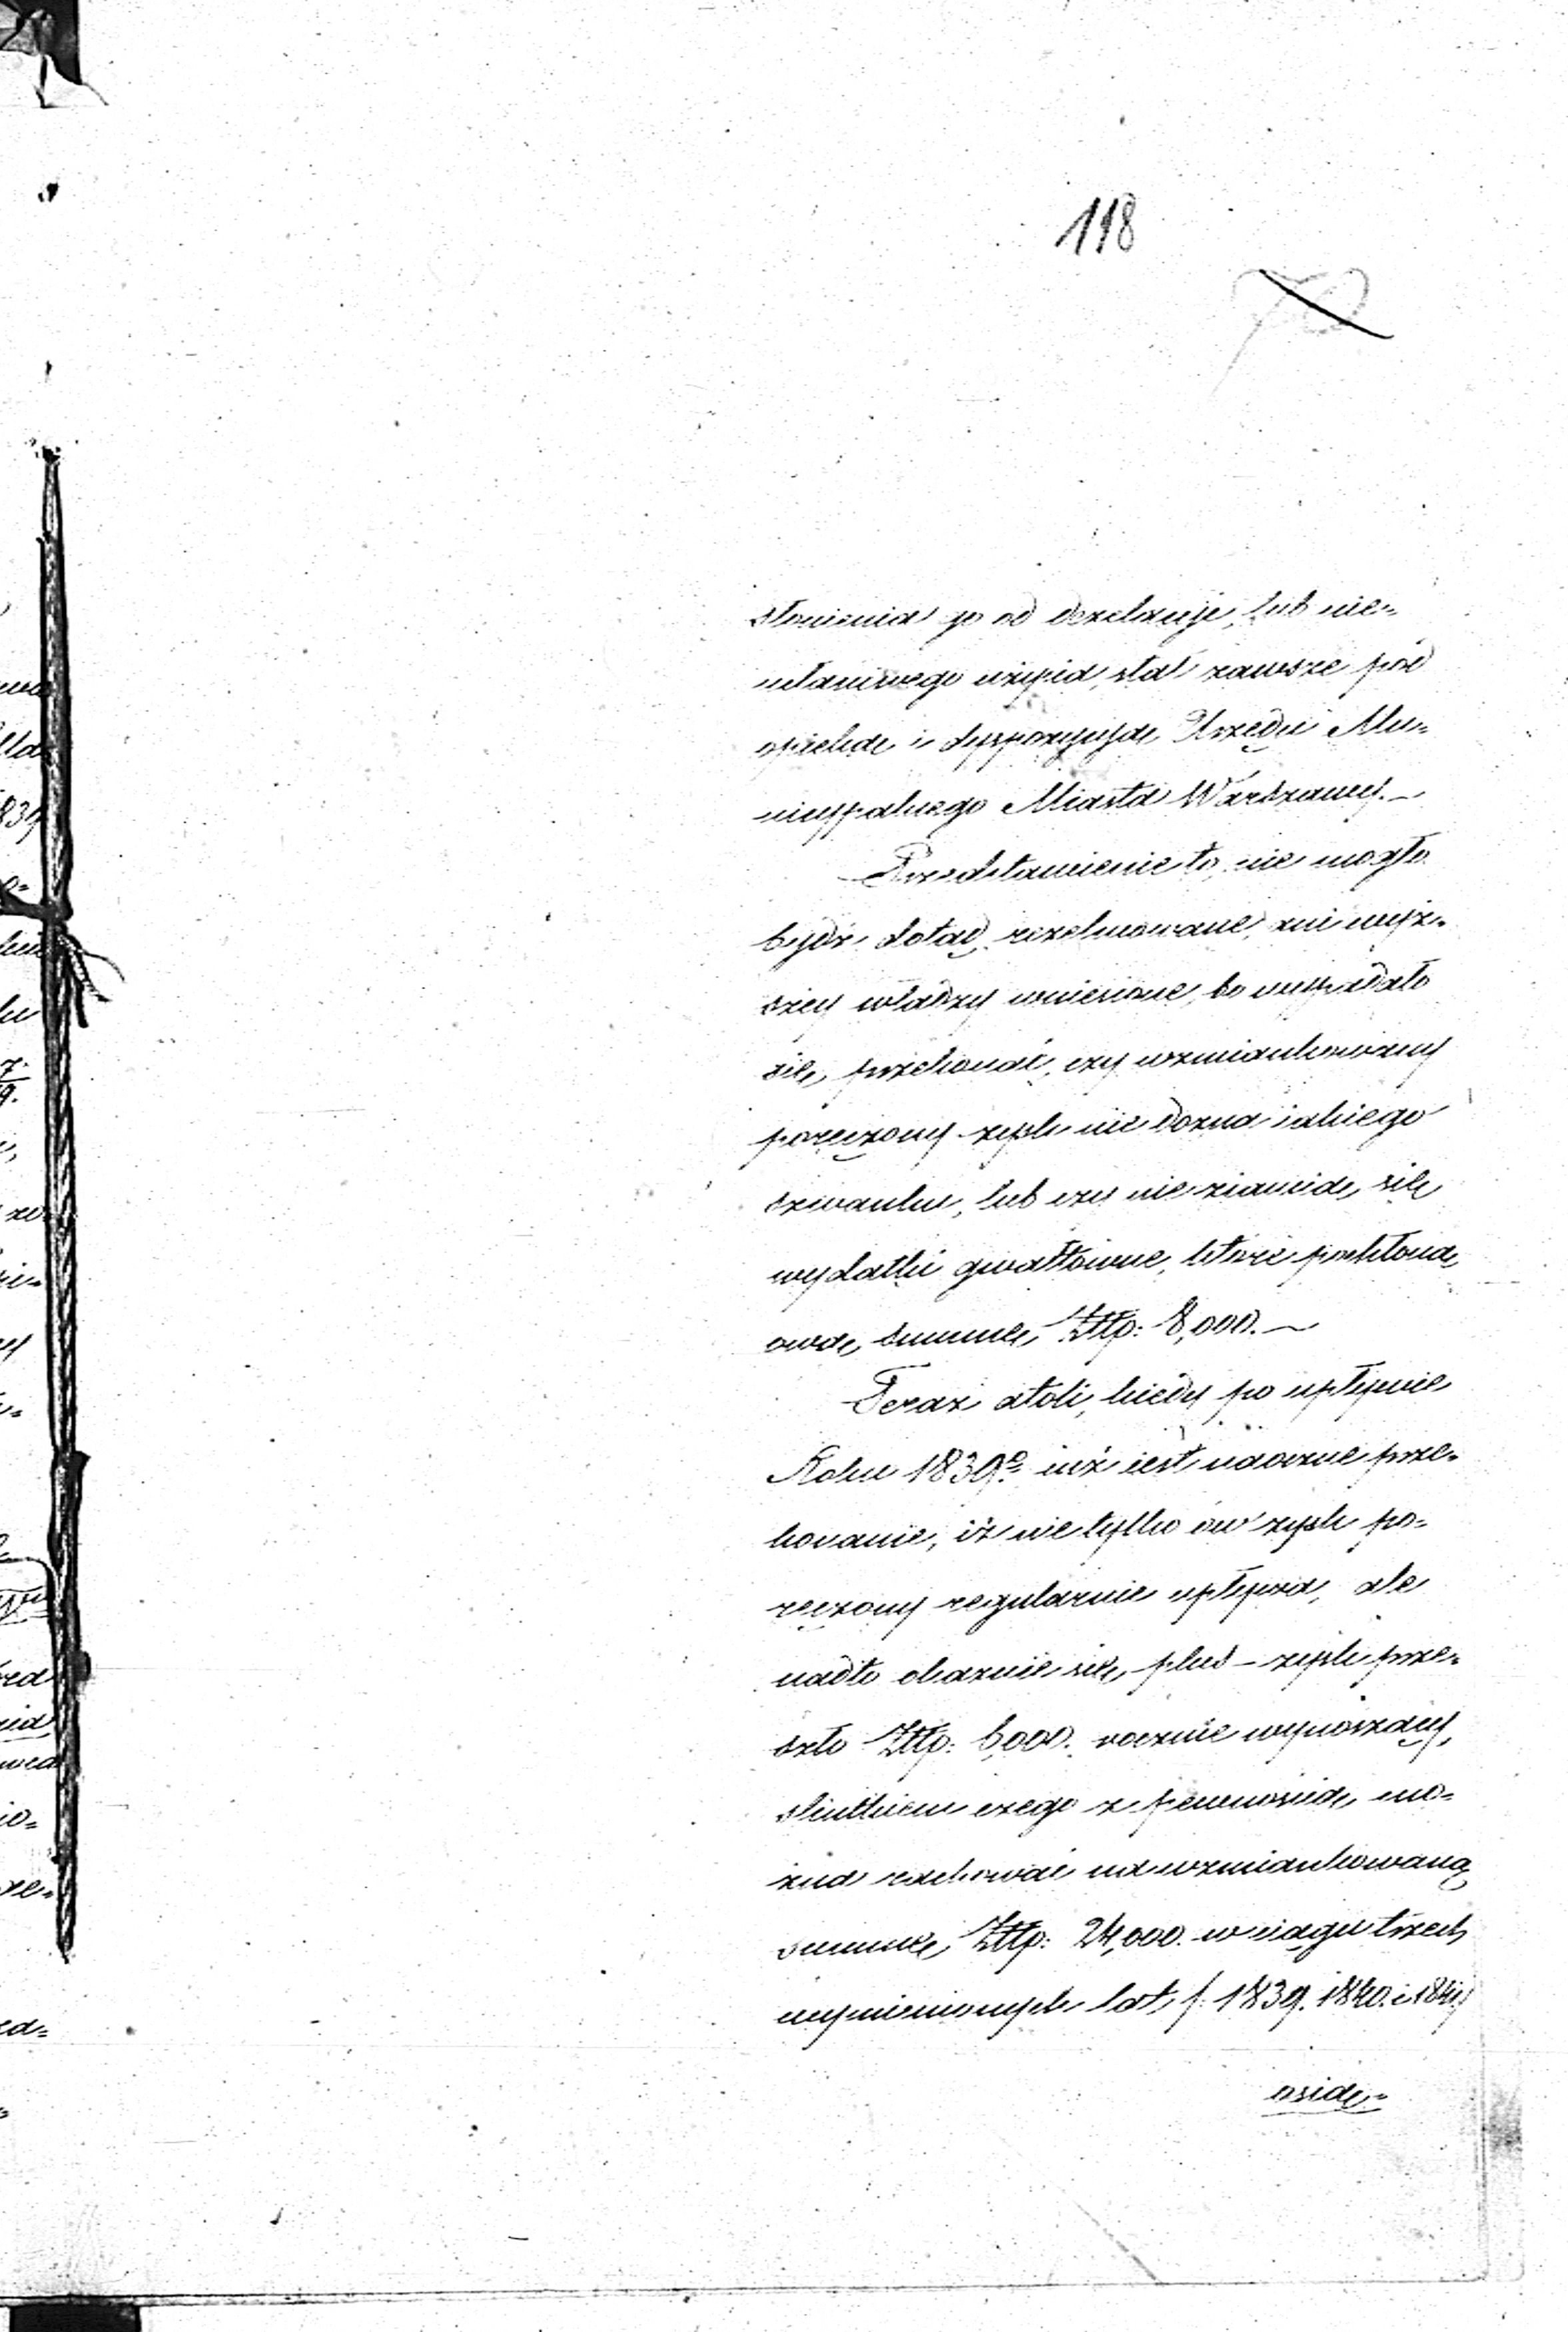 118
70
słonienia go od dezelacyje, lub nie=
właściwego użycia, stał zawsze pod
opieką i dyspozycyją Urzędu Mu=
nicypalnego Miasta Warszawy.—
Przedstawienie to, nie mogło
bydź dotąd rezolwowane, ani wyż=
szey władzy wniesione, bo wypadało
się przekonać, czy wzmiankowany
poręczony zysk nie dozna iakiego
szwanku, lub czy nie ziawią się
wydatki gwałtowne, które pochłoną
ową summę Złtp: 8,000.—
Teraz atoli, kiedy po upływie
Roku 1839º już iest naoczne prze=
konanie, iż nie tylko ów zysk po=
ręczony regularnie upływa, ale
nadto okazuie się, plus–zysk prze=
szło Złtp: 6,000. rocznie wynoszący,
skutkiem czego z pewnością mo=
żna rachować na wzmiankowaną
summę Złtp: 24,000. w ciągu trzech
wymienionych lat /: 1839. 1840. i 1841/
osią=